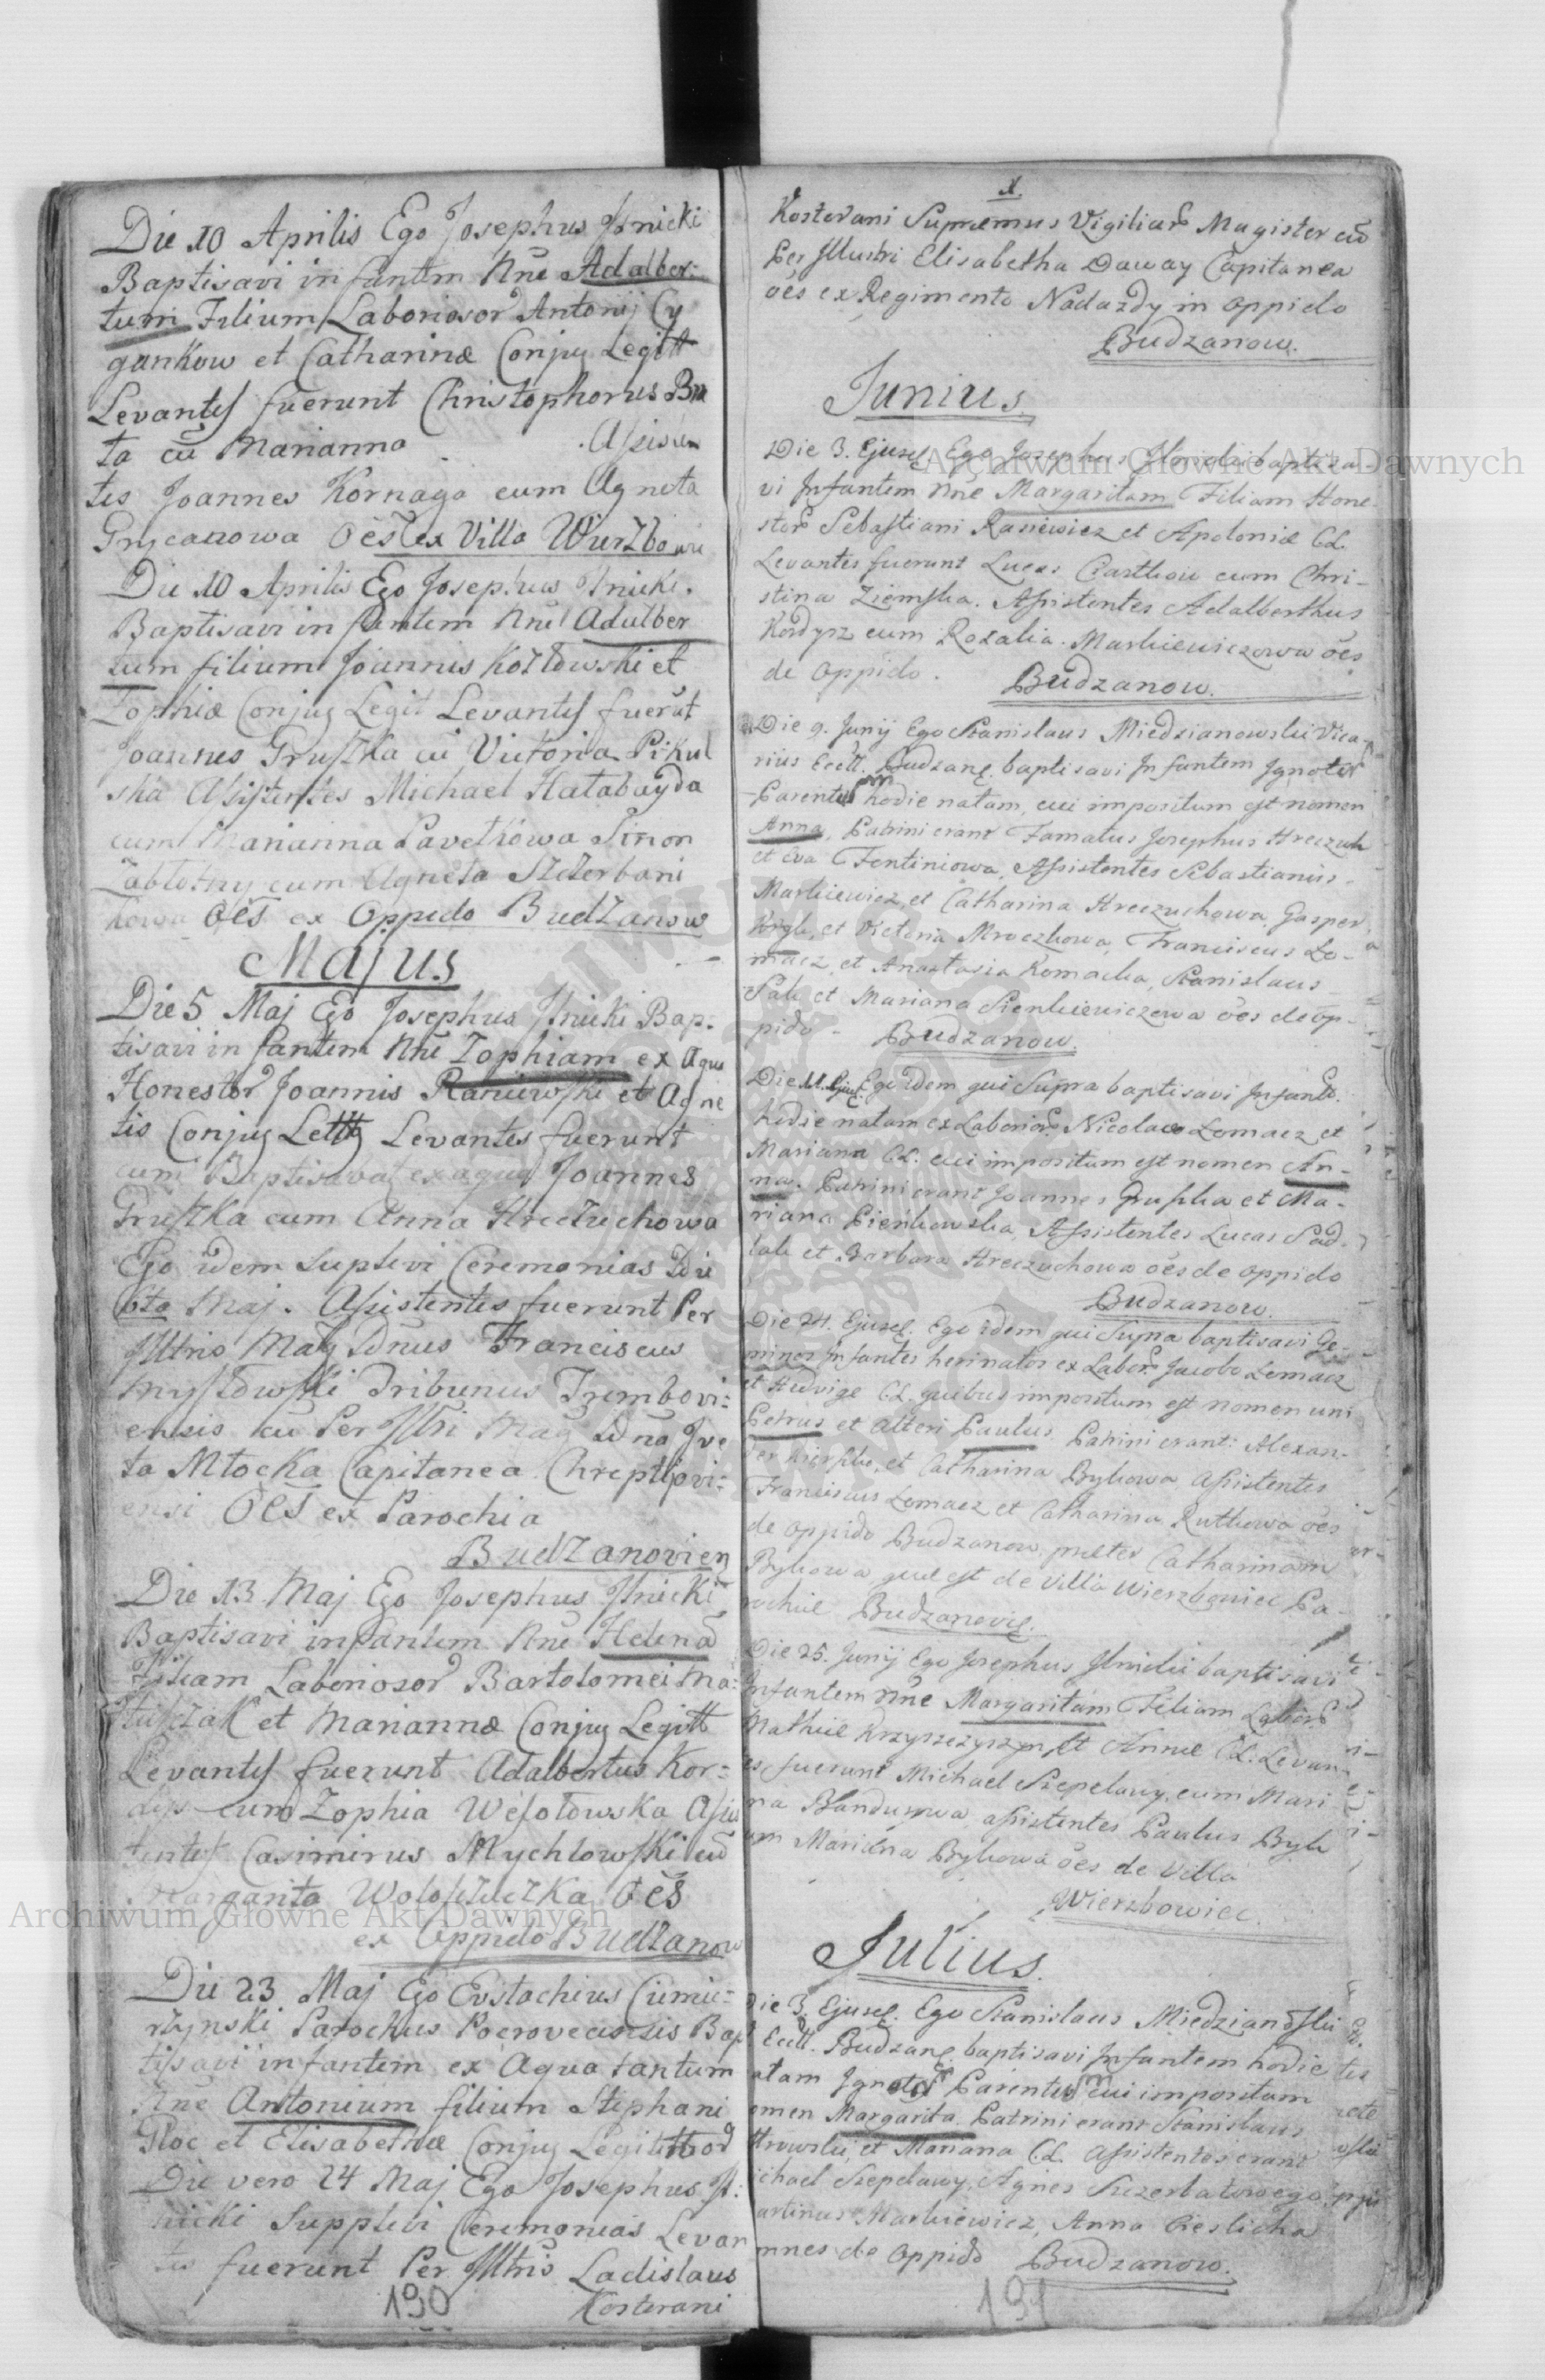 Die 10 Aprilis Ego Josephus Ilnicki
Baptisavi infantem Nne Adalber:
tum Filium Laboriosor Antonij Cy
gankow et Catharinæ Conjug Legitt
Levantes fuerunt Christophorus Bu
ta cū Marianna . Assisten
tes Joannes Kornaga cum Agneta
Grycanowa Oēs ex Villa Wierzbowie
Die 10 Aprilis Ego Josephus Ilnicki.
Baptisavi infantem Nne Adalber
tum filium Joannis Kozłowski et
Zophiæ Conjug Legit Levantes fuerūt
Joannes Gruszka cū Victoria Pikul
ska Assistentes Michael Hatabayda
cum Marianna Pavełkowa Simon
Zabłotny cum Agneta Szczerbani
kowa Oēs ex Oppido Budzanow
Majus
Die 5 Maj Ego Josephus Ilnicki Bap:
tisavi infantem Nne Zophiam ex Aqua
Honestor Joannis Raniewski et Agne
tis Conjug Lettg Levantes fuerunt
cum Baptisabat ex aqua Joannes
Gruszka cum Anna Hreczuchowa
Ego idem suplevi Ceremonias Die
6ta Maj. Assistentes fuerunt Per
Illtris Mag Dnus Franciscus
Mysłowski Tribunus Trembovi:
ensis cū Per Illtri Mag Dna Ive
ta Młocka Capitanea Chreptiovi:
ensi Oēs ex Parochia
Budzanovien
Die 13 Maj Ego Josephus Ilnicki
Baptisavi infantem Nne Helenā
Filiam Laboriosor Bartolomei Ma:
tusczak et Mariannæ Conjug Legitt
Levantes fuerunt Adalbertus Kor:
dys cum Zophia Wesołowska Assis
tentes Casimirus Mychlowski cū
Margarita Wołoszeczka Oēs
ex Oppido Budzanow
Die 23 Maj Ego Eustachius Ciemie:
rzynski Parochus Pocrovecensis Bap
tisavi infantem ex Aqua tantum
Nne Antonium filium Stephani
Głoc et Elisabethæ Conjug Legittimor
Die vero 24 Maj Ego Josephus Il:
nicki Supplevi Ceremonias Levan
tes fuerunt Per Illtris Ladislaus
Kosterani
190
X.
Kosterani Supremus Vigiliar Magister cū
Per Illustri Elisabetha Daway Capitanea
oēs ex Regimento Nadazdy in Oppido
Budzanow.
Junius
Die 3. Ejusd Ego Josephus Ilnicki baptisa-
vi Infantem Nne Margaritam Filiam Hone
stor Sebastiani Raniewicz et Apoloniæ CL.
Levantes fuerunt Lucas Czarthow cum Chri-
stina Ziemska. Assistentes Adalberthus
Kordysz cum Rozalia Markiewiczowa oēs
de Oppido. Budzanow.
Die 9. Junij Ego Stanislaus Miedzianowski Vica-
rius Eccll. Budzane. baptisavi Infantem Ignotor
Parentum hodie natam, cui impositum est nomen
Anna, Patrini erant Famatus Josephus Hreczuch
et Eva Fentiniowa, Assistentes Sebastianus
Markiewicz, et Catharina Hreczuchowa, Gasper
Krygh, et Victoria Mroczkowa, Franciscus Lo-
macz, et Anastasia Komacka, Stanislaus
Sak et Mariana Sienkiewiczowa oēs de op-
pido - Budzanow.
Die 11. Ejusd. Ego idem qui Supra baptisavi Infante
hodie natam ex Laborios. Nicolao Lomacz et
Mariana CL. cui impositum est nomen An-
na. Patrini erant Joannes Gruszka et Ma-
riana Pieńkowska, Assistentes Lucas Sad-
lak et Barbara Hreczuchowa oēs de oppido
Budzanow.
Die 24. Ejusd. Ego idem qui Supra baptisavi Ge-
minos Infantes heri natos ex Labor. Jacobo Lomacz
et Hedvige CL. quibus impositum est nomen uni
Petrus et alteri Paulus. Patrini erant: Alexan-
der et Catharina Bykowa, assistentes
Franciscus Lomacz et Catharina Rutkowa oēs
de oppido Budzanow præter Catharinam
Bykowa quæ est de Villa Wierzbowiec Pa-
rochiæ Budzanovie.
Die 25. Junij Ego Josephus Ilnicki baptisavi
Infantem Nne Margaritam Filiam Labor
Mathiæ Krzyszczyszyn, et Annæ CL. Levan-
es fuerunt Michael Szepelawy, cum Mari
na Blanduszowa, assistentes Paulus Byk
um Mariana Bykowa oēs de Villa
Wierzbowiec.
Julius.
Die 3. Ejusd. Ego Stanislaus Miedzianowski
Eccll. Budzane. baptisavi Infantem hodie
atam Ignotor Parentum cui impositum
omen Margarita. Patrini erant Stanislaus
et Mariana CL. Assistentes erant
ichael Szepelawy, Agnes Szczerbatowego
artinus Markiewicz, Anna Cieslicha
mnes de Oppido Budzanow.
191
Archiwum Główne Akt Dawnych
Archiwum Główne Akt Dawnych